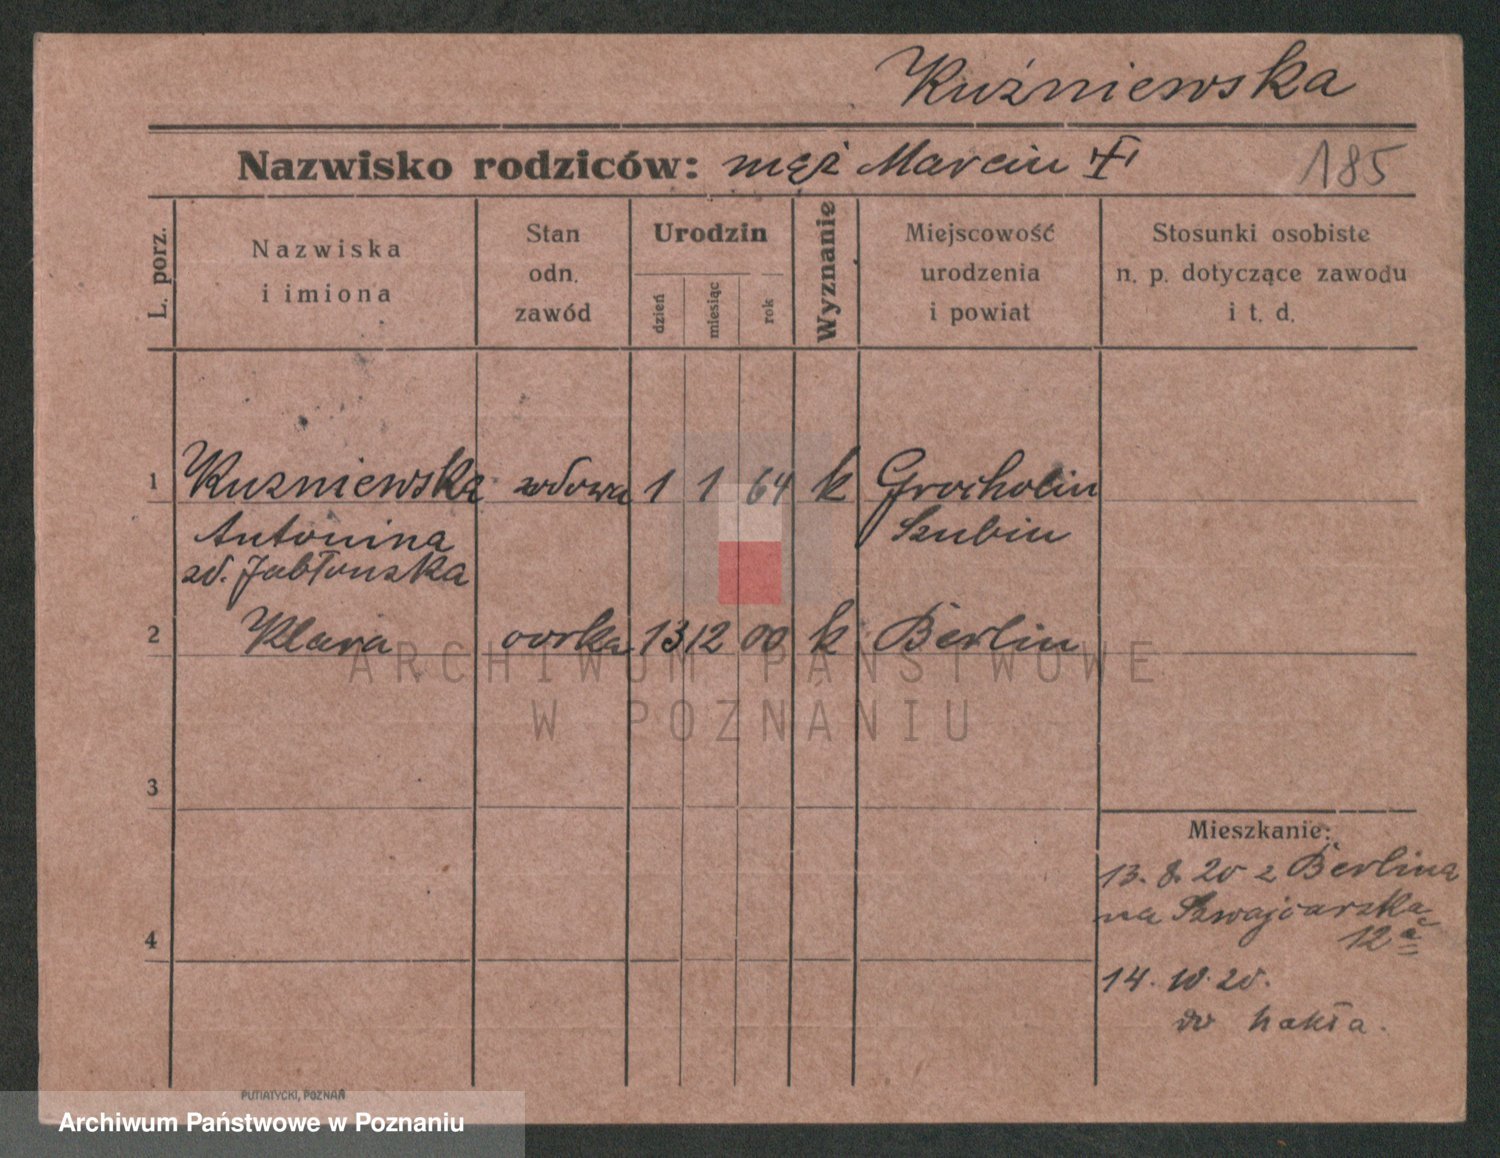 Kuźniewska
Nazwisko rodziców: męż Marcin
185
L. porz.
Nazwiska
i imiona
Stan
odn.
zawód
Urodzin
dzień
miesiąc
rok
Wyznanie
Miejscowość
urodzenia
i powiat
Stosunki osobiste
n. p. dotyczące zawodu
i t. d.
1 Kuzniewska wdowa 1 1 64 k Grocholin
Antonina Szubin
zd. Jabłonska
2 Klara corka 13 12 00 k Berlin
ARCHIWUM PAŃSTWOWE
W POZNANIU
3
4
Mieszkanie:
13. 8. 20 z Berlina
na Szwajcarska
12a
14. 10. 20.
do Nakła.
PUTIATYCKI, POZNAŃ
Archiwum Państwowe w Poznaniu